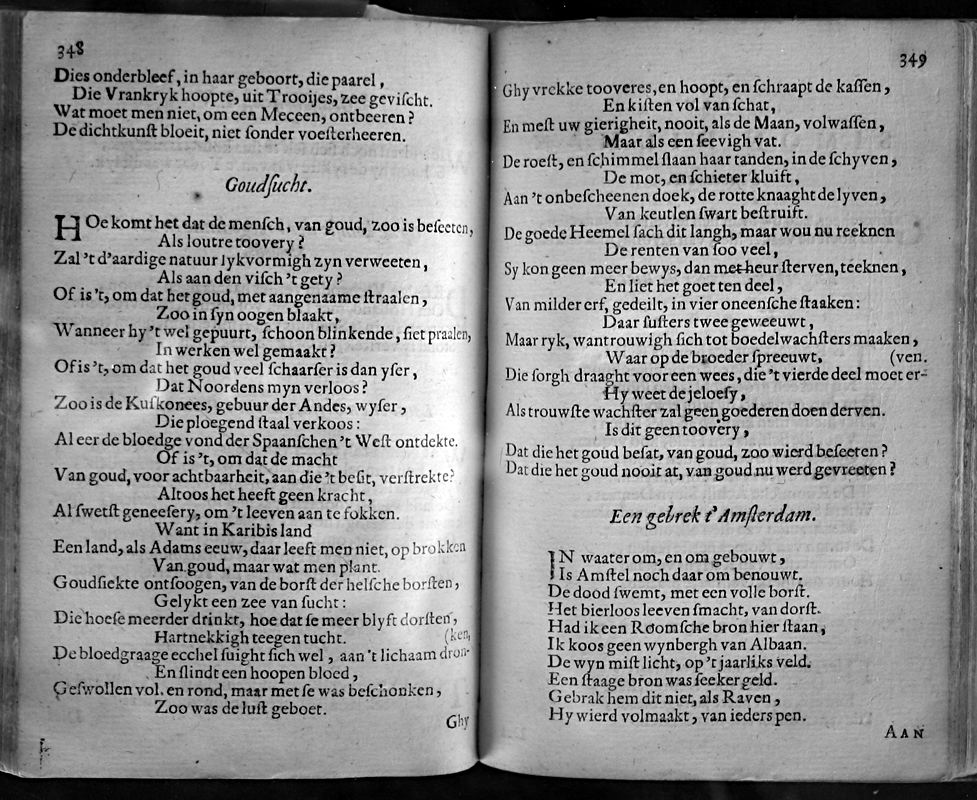 348
Dies onderbleef, in haar geboort, die paarel,
Die Vrankryk hoopte, uit Trooijes, zee gevischt.
Wat moet men niet, om een Meceen, ontbeeren?
De dichtkunſt bloeit, niet ſonder voeſterheeren.
Goudſucht.
HOe komt het dat de menſch, van goud, zoo is beſeeten,
Als loutre toovery?
Zal 't d'aardige natuur lykvormigh zyn verweeten,
Als aan den viſch 't gety?
Of is 't, om dat het goud, met aangenaame ſtraalen,
Zoo in ſyn oogen blaakt,
Wanneer hy 't wel gepuurt, ſchoon blinkende, ſiet praalen,
In werken wel gemaakt?
Of is 't, om dat het goud veel ſchaarſer is dan yſer,
Dat Noordens myn verloos?
Zoo is de Kuſkonees, gebuur der Andes, wyſer,
Die ploegend ſtaal verkoos:
Al eer de bloedge vond der Spaanſchen 't Weſt ontdekte.
Of is 't, om dat de macht
Van goud, voor achtbaarheit, aan die 't beſit, verſtrekte?
Altoos het heeft geen kracht,
Al ſwetſt geneeſery, om 't leeven aan te fokken.
Want in Karibis land
Een land, als Adams eeuw, daar leeft men niet, op brokken
Van goud, maar wat men plant.
Goudſiekte ontſoogen, van de borſt der helſche borſten,
Gelykt een zee van ſucht:
Die hoeſe meerder drinkt, hoe dat ſe meer blyft dorſten,
Hartnekkigh teegen tucht. (ken,
De bloedgraage ecchel ſuight ſich wel, aan 't lichaam dron-
En ſlindt een hoopen bloed,
Geſwollen vol. en rond, maar met ſe was beſchonken,
Zoo was de luſt geboet.
Ghy
349
Ghy vrekke tooveres, en hoopt, en ſchraapt de kaſſen,
En kiſten vol van ſchat,
En meſt uw gierigheit, nooit, als de Maan, volwaſſen,
Maar als een ſeevigh vat.
De roeſt, en ſchimmel ſlaan haar tanden, in de ſchyven,
De mot, en ſchieter kluift,
Aan 't onbeſcheenen doek, de rotte knaaght de lyven,
Van keutlen ſwart beſtruift.
De goede Heemel ſach dit langh, maar wou nu reeknen
De renten van ſoo veel,
Sy kon geen meer bewys, dan met heur ſterven, teeknen,
En liet het goet ten deel,
Van milder erf, gedeilt, in vier oneenſche ſtaaken:
Daar ſuſters twee geweeuwt,
Maar ryk, wantrouwigh ſich tot boedelwachſters maaken,
Waar op de broeder ſpreeuwt. (ven.
Die ſorgh draaght voor een wees, die 't vierde deel moet er-
Hy weet de jeloeſy,
Als trouwſte wachſter zal geen goederen doen derven.
Is dit geen toovery,
Dat die het goud beſat, van goud, zoo wierd beſeeten?
Dat die het goud nooit at, van goud nu werd gevreeten?
Een gebrek t' Amſterdam.
IN waater om, en om gebouwt,
Is Amſtel noch daar om benouwt.
De dood ſwemt, met een volle borſt.
Het bierloos leeven ſmacht, van dorſt.
Had ik een Roomſche bron hier ſtaan,
Ik koos geen wynbergh van Albaan.
De wyn miſt licht, op 't jaarliks veld.
Een ſtaage bron was ſeeker geld.
Gebrak hem dit niet, als Raven,
Hy wierd volmaakt, van ieders pen.
AAN